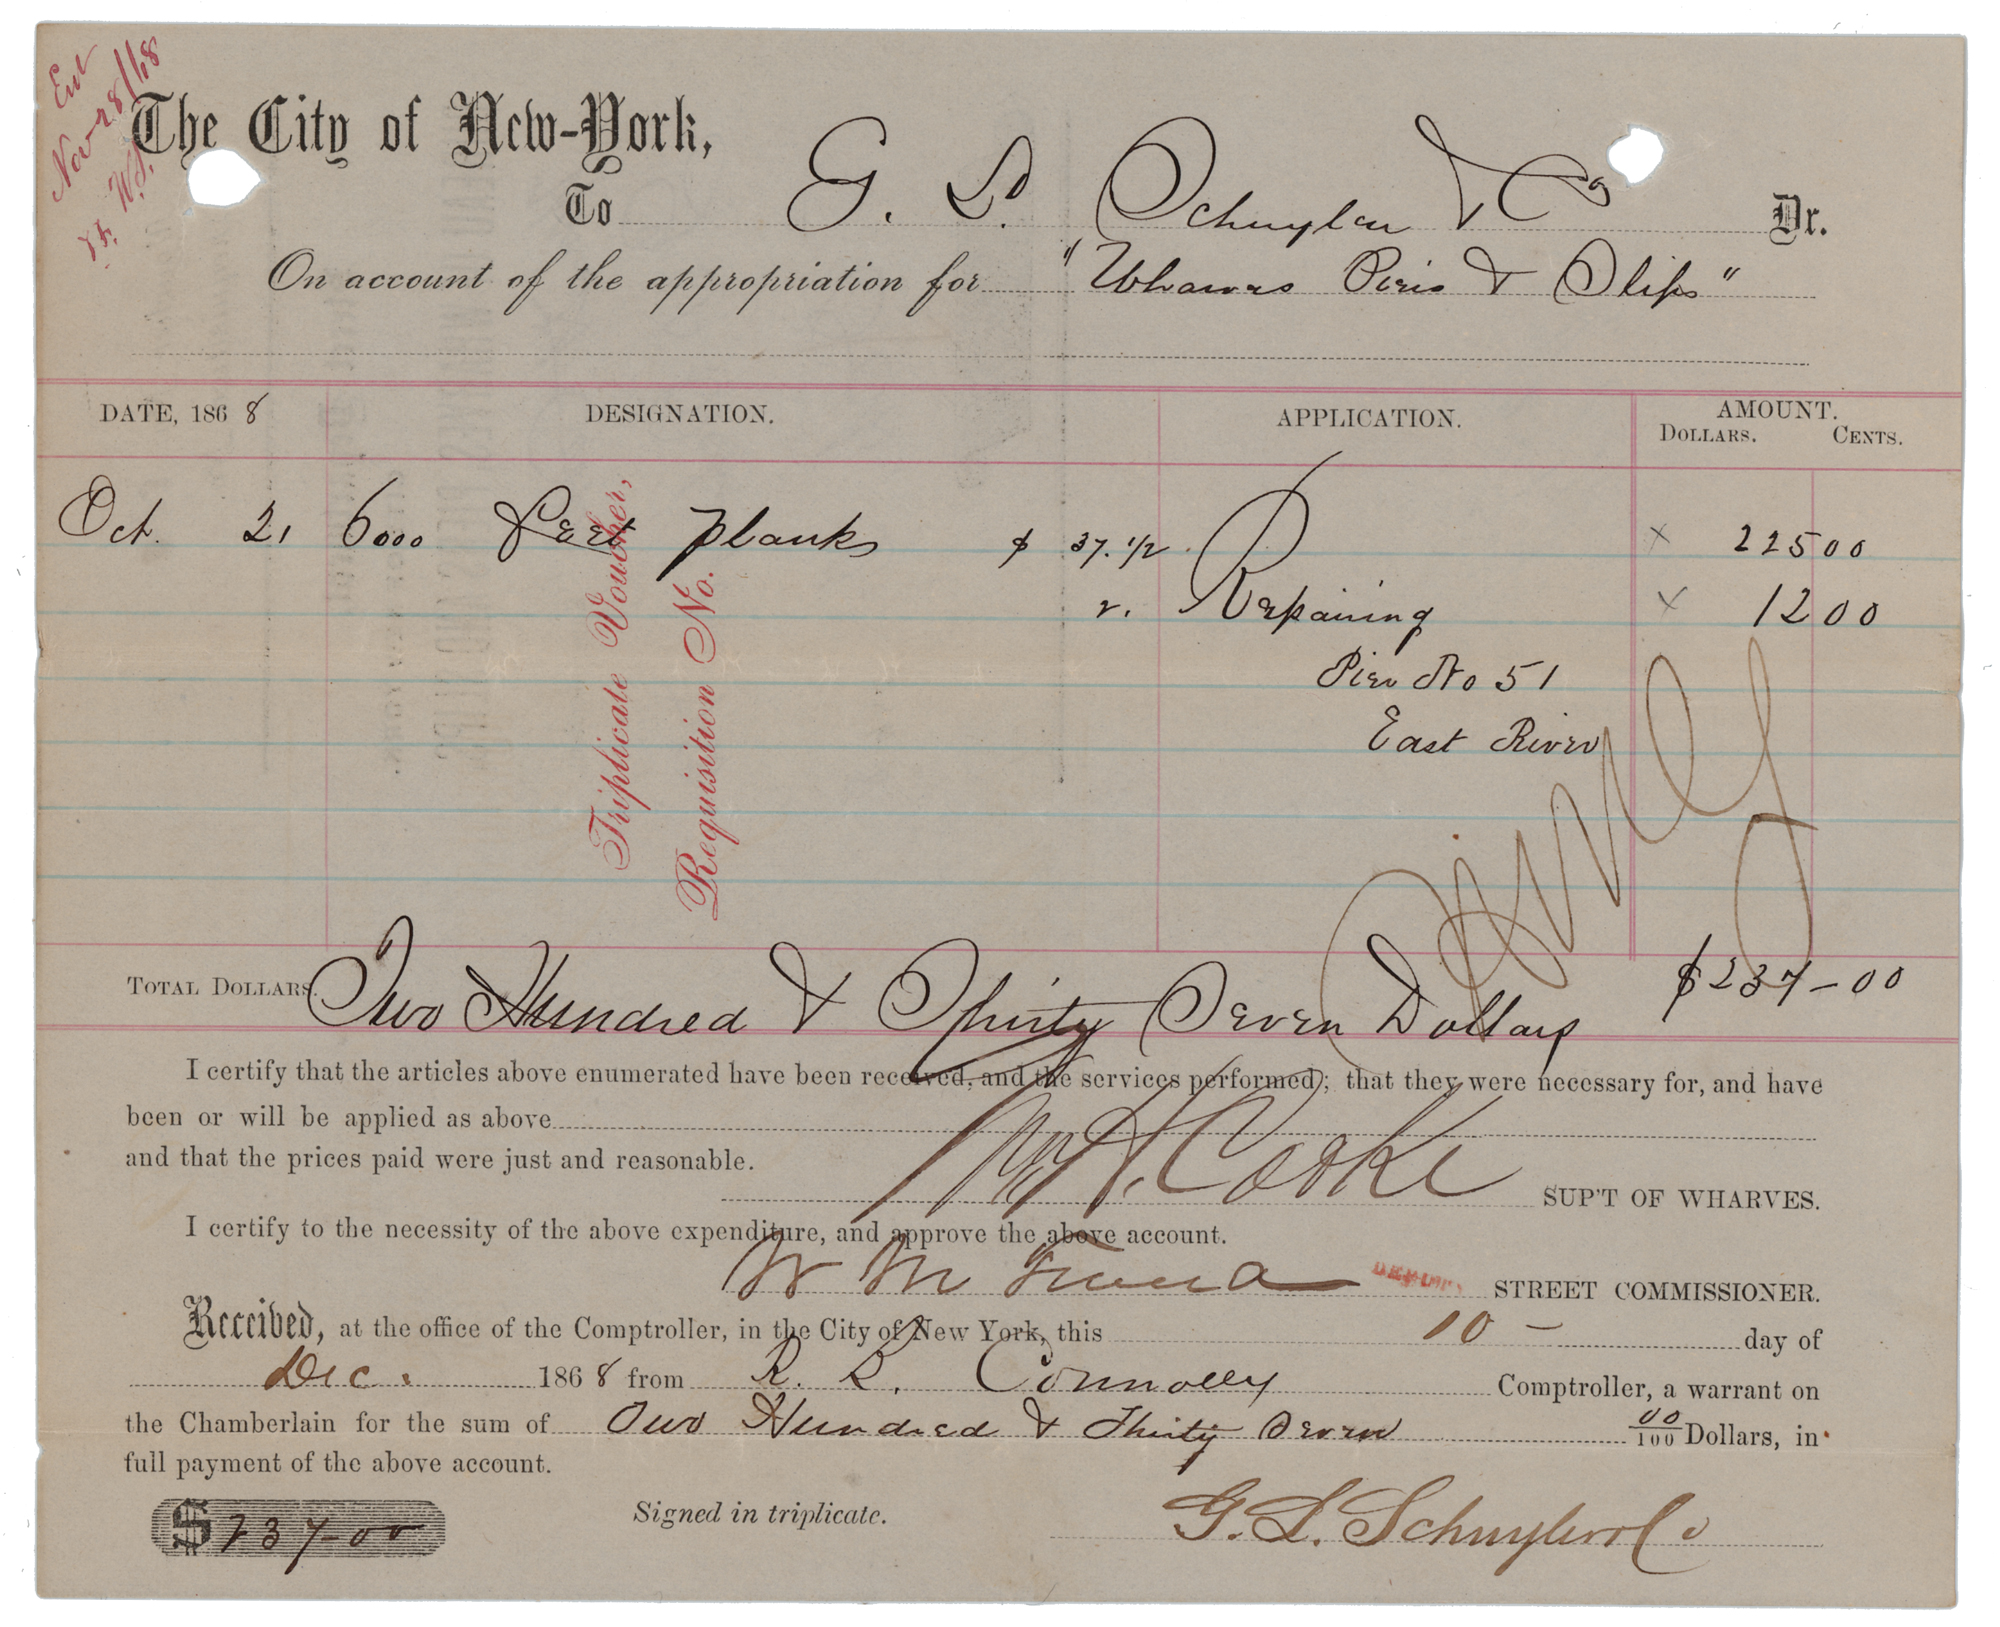 Ent
Nov 28/68
W.S.
The City of New-York,
To G. L. Schuyler & Co Dr.
On account of the appropriation for "Wharves Piers & Slips"
DATE, 1868 DESIGNATION. APPLICATION. AMOUNT.
DOLLARS. CENTS.
Oct. 21 6000 Feet planks $ 37.1/2 x 225 00
2. Repairing x 12 00
Pier No 51
East River
Triplicate Voucher,
Requisition No.
TOTAL DOLLARS. Two Hundred & Thirty Seven Dollars $237-00
I certify that the articles above enumerated have been received, and the services performed; that they were necessary for, and have
been or will be applied as above
and that the prices paid were just and reasonable.
Cooke SUP'T OF WHARVES.
I certify to the necessity of the above expenditure, and approve the above account.
W M DEPUTY STREET COMMISSIONER.
Received, at the office of the Comptroller, in the City of New York, this 10 - day of
Dec. 1868 from R. B. Connolly Comptroller, a warrant on
the Chamberlain for the sum of Two Hundred & Thirty Seven 00/100 Dollars, in
full payment of the above account.
$237-00 Signed in triplicate. G. L. Schuyler & Co